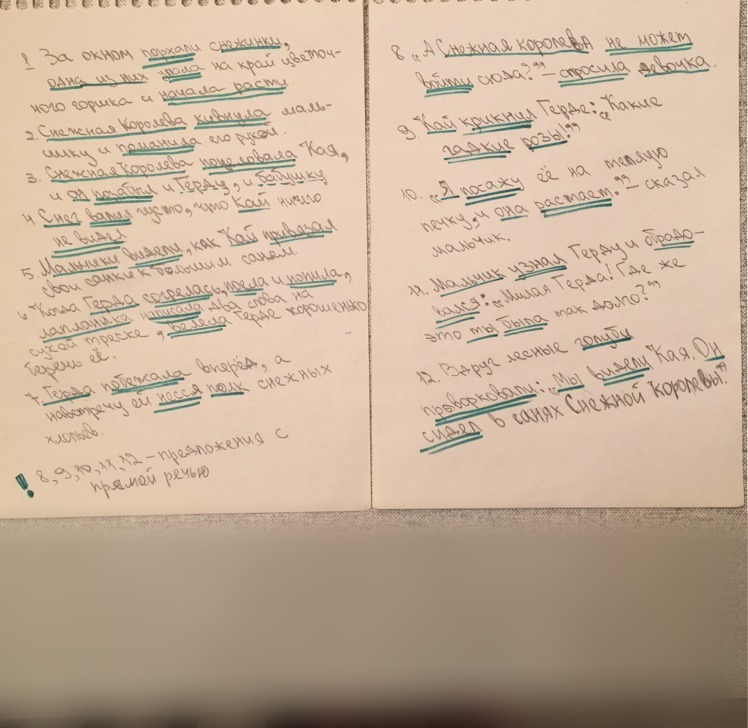 1 За окном порхали снежинки,
одна из них упала на край цветоч-
ного горшка и начала расти
2. Снежная Королева кивнула маль-
чику и поманила его рукой.
3. Снежная Королева поцеловала Кая,
и он позабыл и Герду, и бабушку
4. Снег валил густо, что Кай ничего
не видел
5. Мальчики видели, как Кай привязал
свои санки к большим саням.
6. Когда Герда согрелась, поела и попила,
лапландка написала два слова на
сухой треске, велела Герде хорошенько
беречь её.
7. Герда побежала вперёд, а
навстречу ей нёсся полк снежных
хлопьев.
! 8, 9, 10, 11, 12 - предложения с
прямой речью
8 „А Снежная королева не может
войти сюда?" - спросила девочка.
9. Кай крикнул Герде: „Какие
гадкие розы!"
10. „Я посажу её на тёплую
печку, и она растает." - сказал
мальчик.
11. Мальчик узнал Герду и обрадо-
вался: „Милая Герда! Где же
это ты была так долго?"
12. Вдруг лесные голуби
проворковали: „Мы видели Кая. Он
сидел в санях Снежной Королевы"